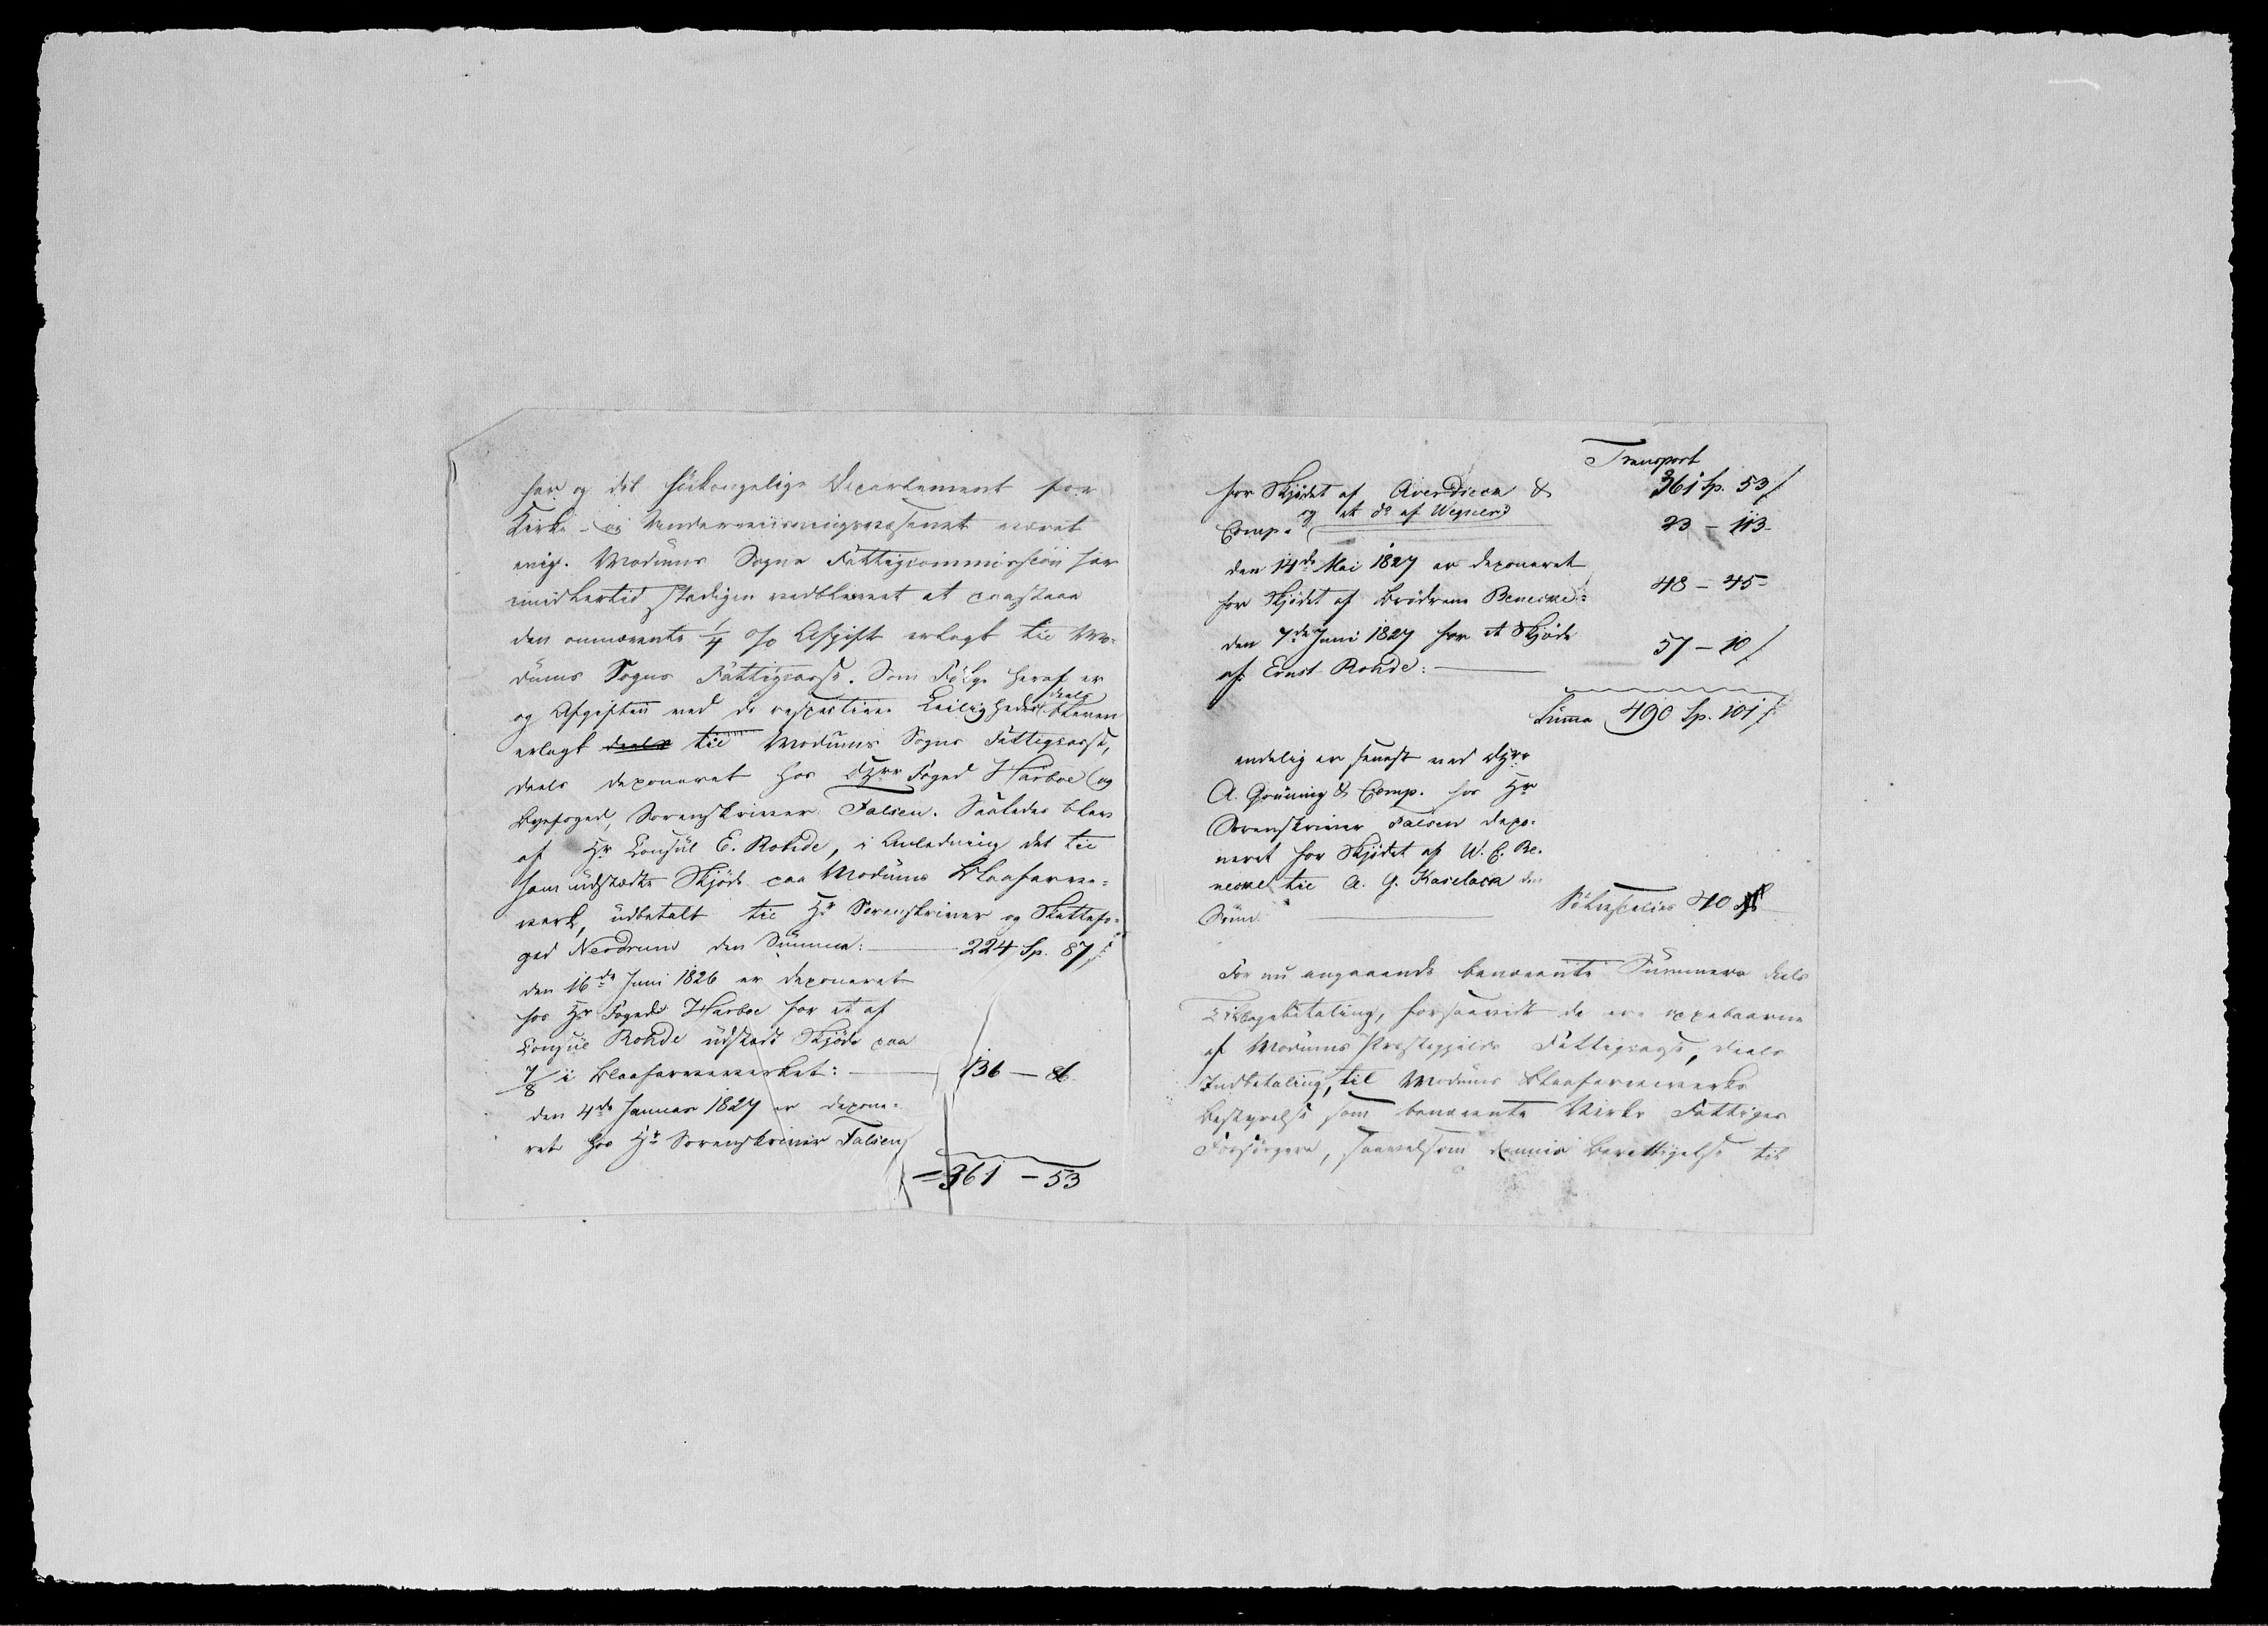 har og det høikongelige Departement for
Kirke- og Underviisningsvæsenet været
enig. Modums Sogns Fattigcommission har
imidlertid stadigen vedblevet at paastaae
den omnævnte 1/4 % Afgift erlagt til Mo-
dums Sogns Fattigcasse. Som Følge heraf er
og Afgiften ved de respective Leiligheder deels bleven
erlagt deels til Modums Sogns Fattigcasse,
deels deponeret hos DHrr Foged Harboe og
Byefoged, Sorenskriver Falsen. Saaledes blev
af Hr Consul E. Rohde, i Anledning det til
ham udstædte Skjöde paa Modums Blaafarve-
værk, udbetalt til Hr Sorenskriver og Skattefo-
ged Nerdrum den Summa: 224 Sp. 87 ß
den 16de Juni 1826 er deponeret
hos Hr Foged Harboe for et af
Consul Rohde udstædt Skjöde paa
7/8 i Blaafarveværket: 136 — 86.
den 4de Januar 1827 er depone-
ret hos Hr Sorenskriver Falsen
= 361 — 53
Transport
for Skjödet af Averdieck & 361 Sp. 53 ß
Comp. og et do af Wegner 23 — 113
den 14de Mai 1827 er deponeret
for Skjödet af Brödrene Benecke: 48 — 45
den 7de Juni 1827 for et Skjöde
af Ernst Rohde: 57 — 10 ß
Summa 490 Sp. 101 ß
endelig er senest ved DHrr
A. Grüning & Comp. hos Hr
Sorenskriver Falsen depo-
neret for Skjödet af W. C. Be-
necke til A. G. Kaselack den
Sum Sölvspecies 40
For nu angaaende benævnte Summers deels
Tilbagebetaling, forsaavidt de ere oppebaarne
af Modums Præstegjelds Fattigcasse, deels
Indbetaling, til Modums Blaafarveværks
Bestyrelse som benævnte Værks Fattiges
Forsörgere, saavelsom dennes Berettigelse til